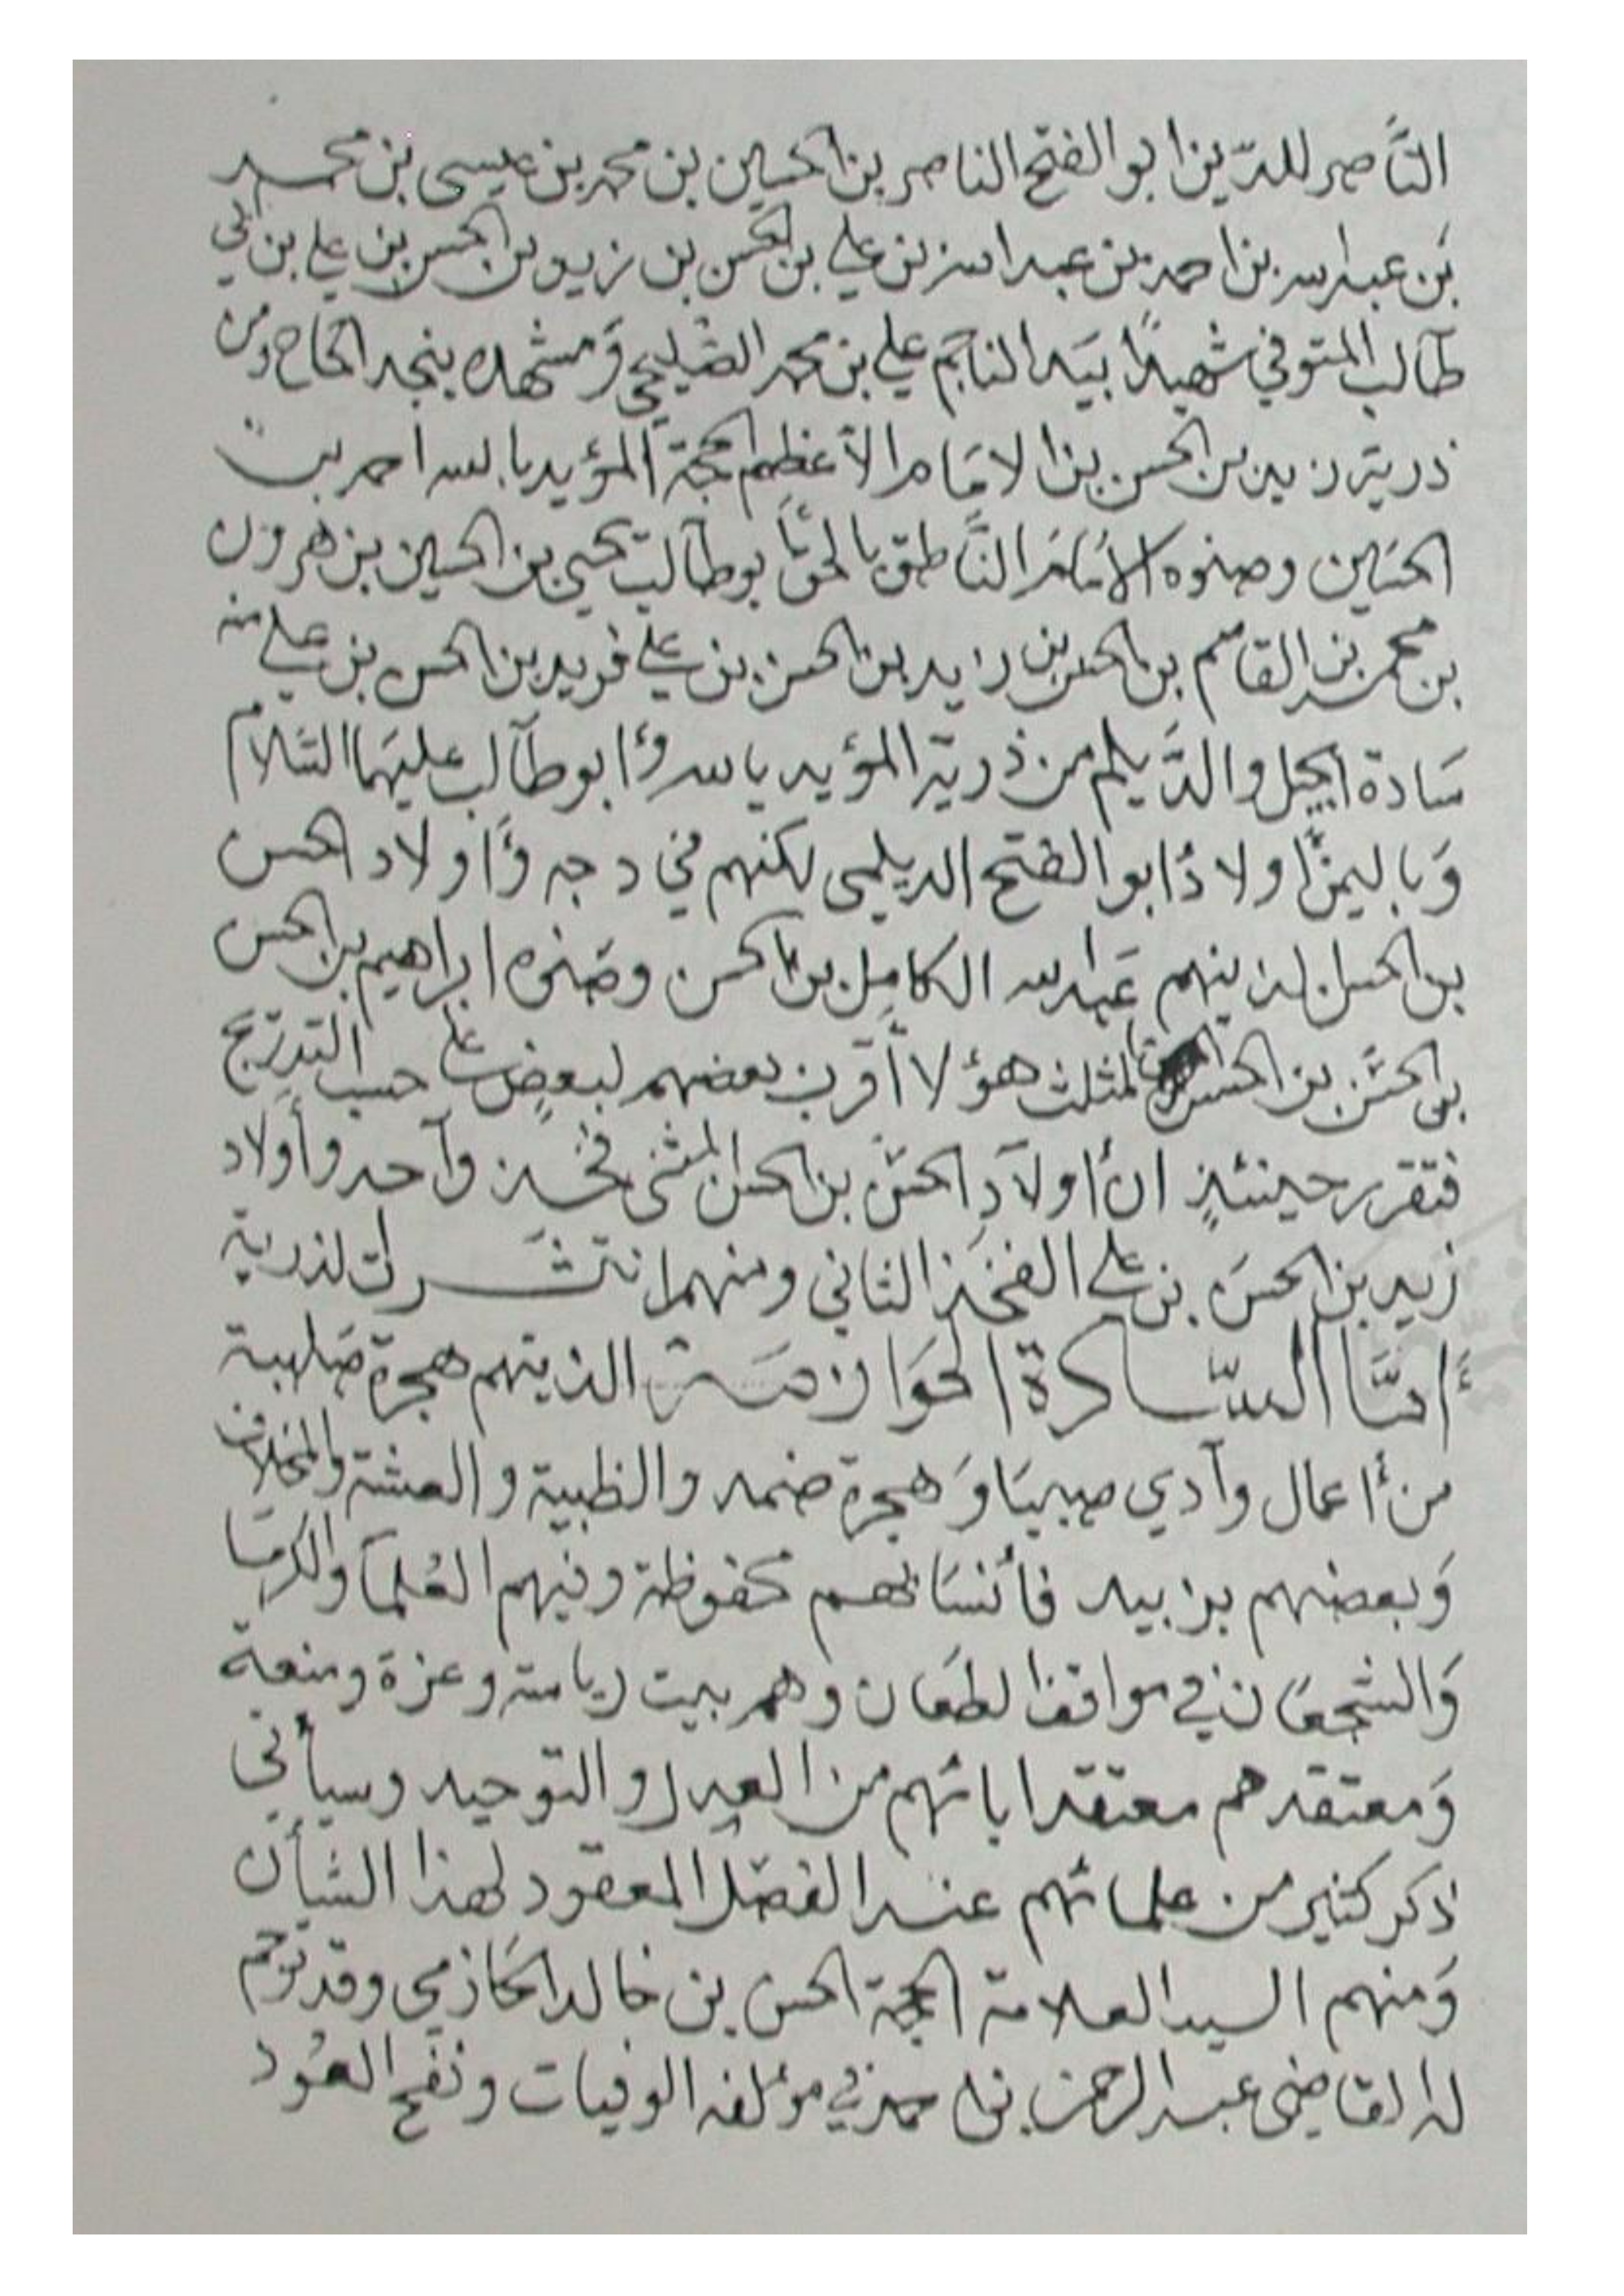 النَّاصر للدّين ابو الفتح الناصر بن الحسين بن محمد بن عيسى بن محمد
بن عبدالله بن احمد بن عبدالله بن علي بن الحسن بن زيد بن الحسن بن علي بن ابي
طالب المتوفي شهيدًا بيد الناجم علي بن محمد الصليحي وَمشهده بنجد الحاح ومن
ذرية زيد بن الحسن بن الامَام الأعظم الحجة المؤيد بالله احمد بن
الحسين وصنوه الامَام النَّاطق بالحق ابو طالب يحيى بن الحسين بن هرون
بن محمد بن القاسم بن الحسن بن زيد بن الحسن بن علي فزيد بن الحسن بن علي منه
سَادة الجيل والدَّيلم من ذرية المؤيد بالله وأبو طالب عليهما السَّلام
وَباليمن أولاد أبو الفتح الديلمي لكنهم في درجه وَأولاد الحسن
بن الحسن الذينهم عَبدالله الكامِل بن الحسن وصَنوه ابراهيم بن الحسن
بن الحسَن بن الحسن المثلث هؤلا أقرب بعضهم لبعضٍ على حسب التدرّج
فتقرر حينئذٍ ان أولآدِ الحسَن بن الحسن المثنى فخذ وآحد وأولاد
زيد بن الحسَن بن علي الفخذ الثاني ومنهما انتشرت الذرية
وَأمَّا السَّادة الحَوازمَة الذينهم هجرة صَلهبة
من أعمال وآدي صبيَا وَهجرة ضمد والظبية والعشة والمخلاف
وَبعضهم بزبيد فأنسَابهم محفوظة وفيهم العُلمآ والكرمَا
وَالشجعَان في مواقف الطعَان وهم بيت رياسة وعزة ومنعة
وَمعتقدهم معتقد ابائهم من العدل والتوحيد وسيأتي
ذكر كثير من علمائهم عند الفصَل المعقود لهذا الشأن
وَمنهم السيد العلامة الحجة الحسن بن خالد الحَازمي وقد ترجم
له القاضي عبد الرحمن بن احمد في مؤلفه الوفيات ونفح العُود